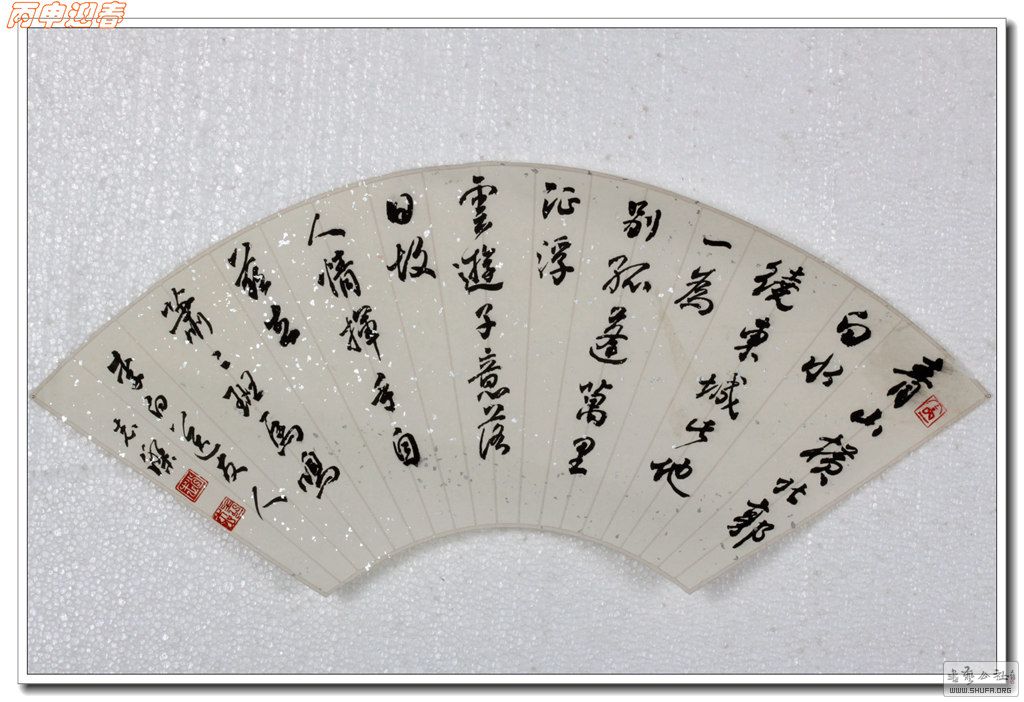 丙申迎春
青山橫北郭
白水
繞東城此地
一為
別孤蓬萬里
征浮
雲遊子意落
日故
人情揮手自
茲去
蕭〻班馬鳴
李白送友人
WWW.SHUFA.ORG